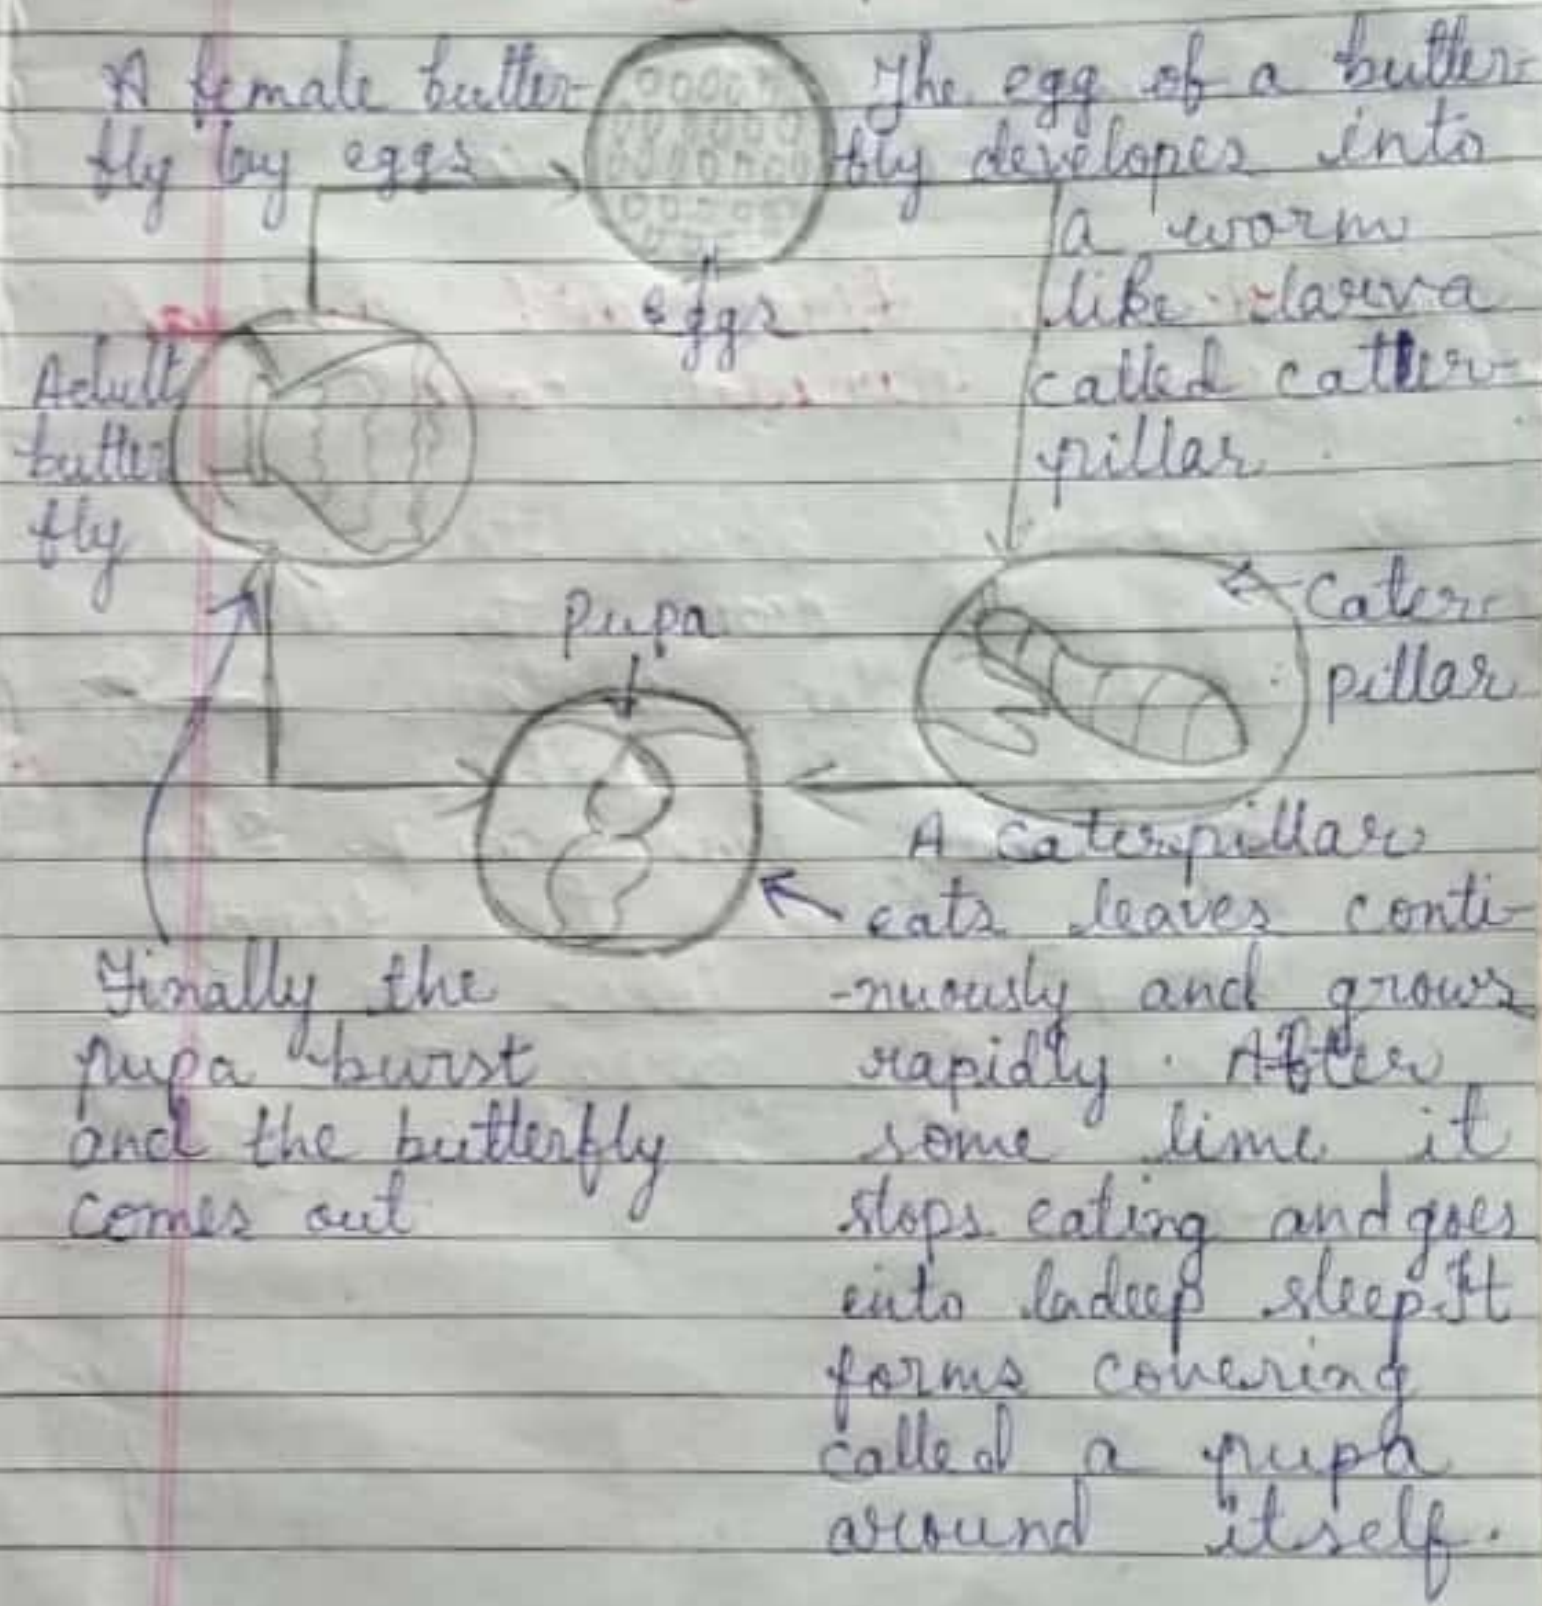 A female butter-
fly lay eggs
The egg of a butter-
fly developes into
a worm
like larva
called catter-
pillar
eggs
Adult
butter
fly
Cater-
pillar
Pupa
A caterpillar
eats leaves conti-
-nuously and grows
rapidly. After
some time it
stops eating and goes
into deep sleep. It
forms covering
called a pupa
around itself.
Finally the
pupa burst
and the butterfly
comes out